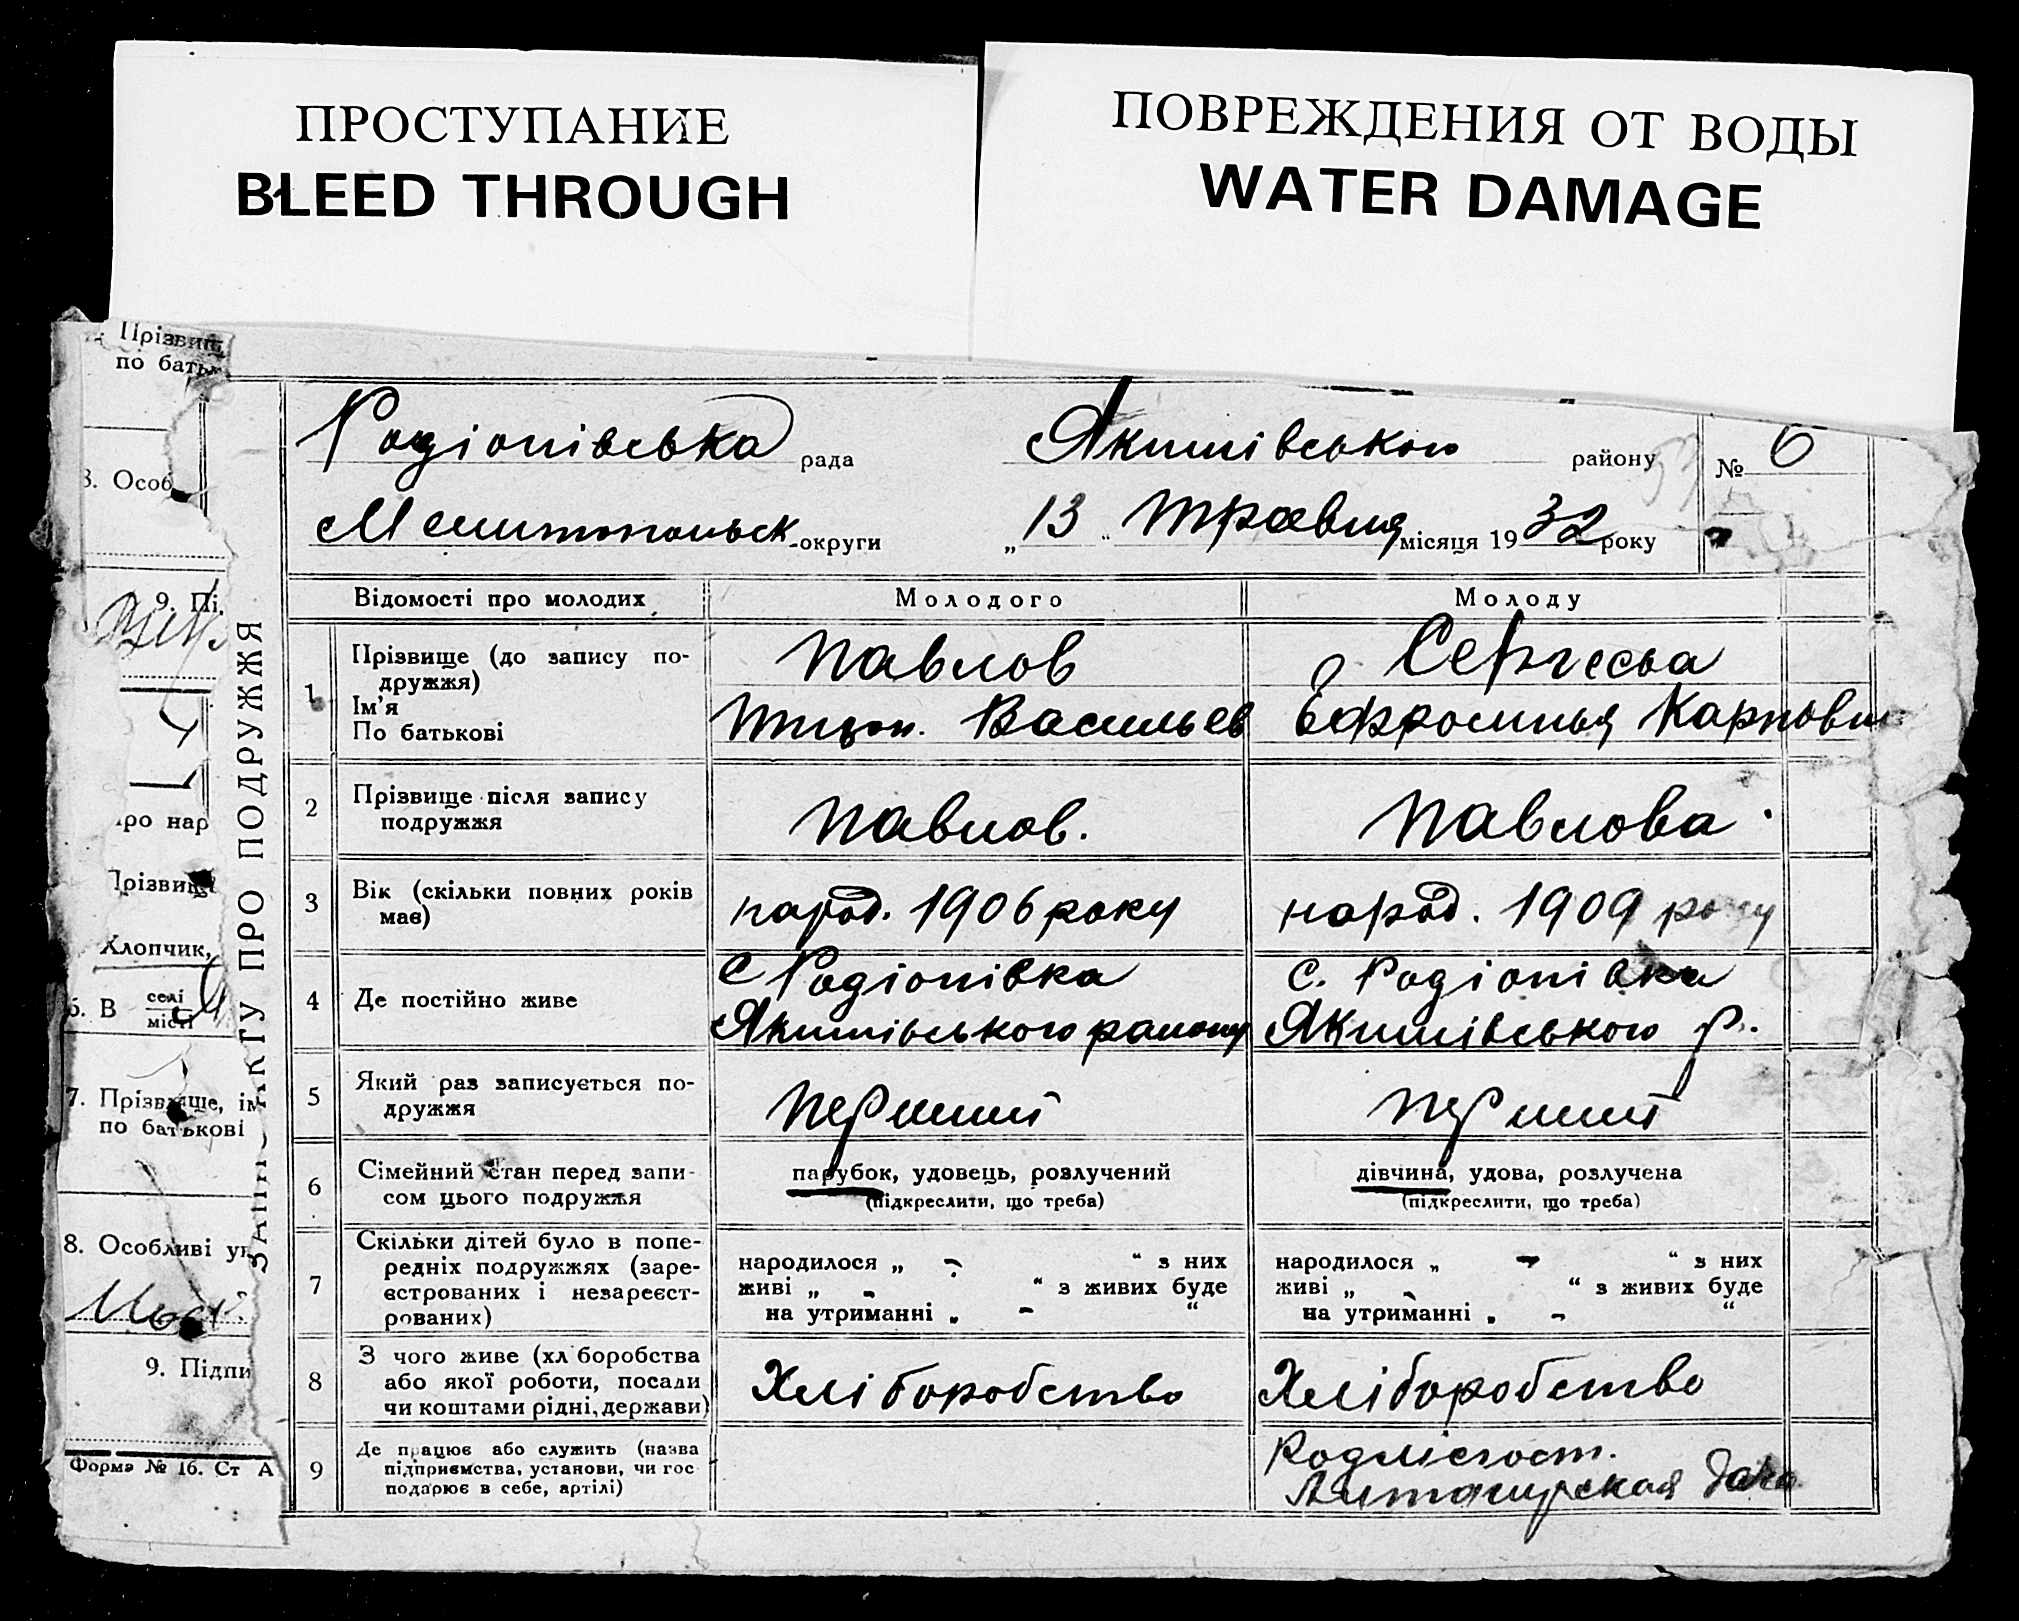 ПРОСТУПАНИЕ
BLEED THROUGH
ПОВРЕЖДЕНИЯ ОТ ВОДЫ
WATER DAMAGE
Прізвищ
по батьк
3. Особ
9. Пі
ро нар
Прізвищ
Хлопчик,
6. В селі
місті
7. Прізвище, ім
по батькові
8. Особливі ук
9. Підпи
Форма № 16. Ст А
ЗАПИС АКТУ ПРО ПОДРУЖЖЯ
Родіонівська рада Якимівського району № 6
Мелитопольськ округи „ 13 “ травня місяця 19 32 року
Відомості про молодих Молодого Молоду
1 Прізвище (до запису по-
дружжя)
Ім'я
По батькові
Павлов
Васильев
Карповн
2 Прізвище після запису
подружжя
Павлов.
Павлова
3 Вік (скільки повних років
має)
народ. 1906 року
народ. 1909 року
4 Де постійно живе
С Родіонівка
Якимівського району
с. Родіонівка
Якимівського р.
5 Який раз записується по-
дружжя
перший
перший
6 Сімейний стан перед запи-
сом цього подружжя
парубок, удовець, розлучений
(підкреслити, що треба)
дівчина, удова, розлучена
(підкреслити, що треба)
7 Скільки дітей було в попе-
редніх подружжях (заре-
єстрованих і незареєст-
рованих)
народилося „ - “ з них
живі „ - “ з живих буде
на утриманні „ - “
народилося „ - “ з них
живі „ - “ з живих буде
на утриманні „ - “
8 З чого живе (хл боробства
або якої роботи, посади
чи коштами рідні, держави)
Хліборобство
Хліборобство
9 Де працює або служить (назва
підприємства, установи, чи гос
подарює в себе, артілі)